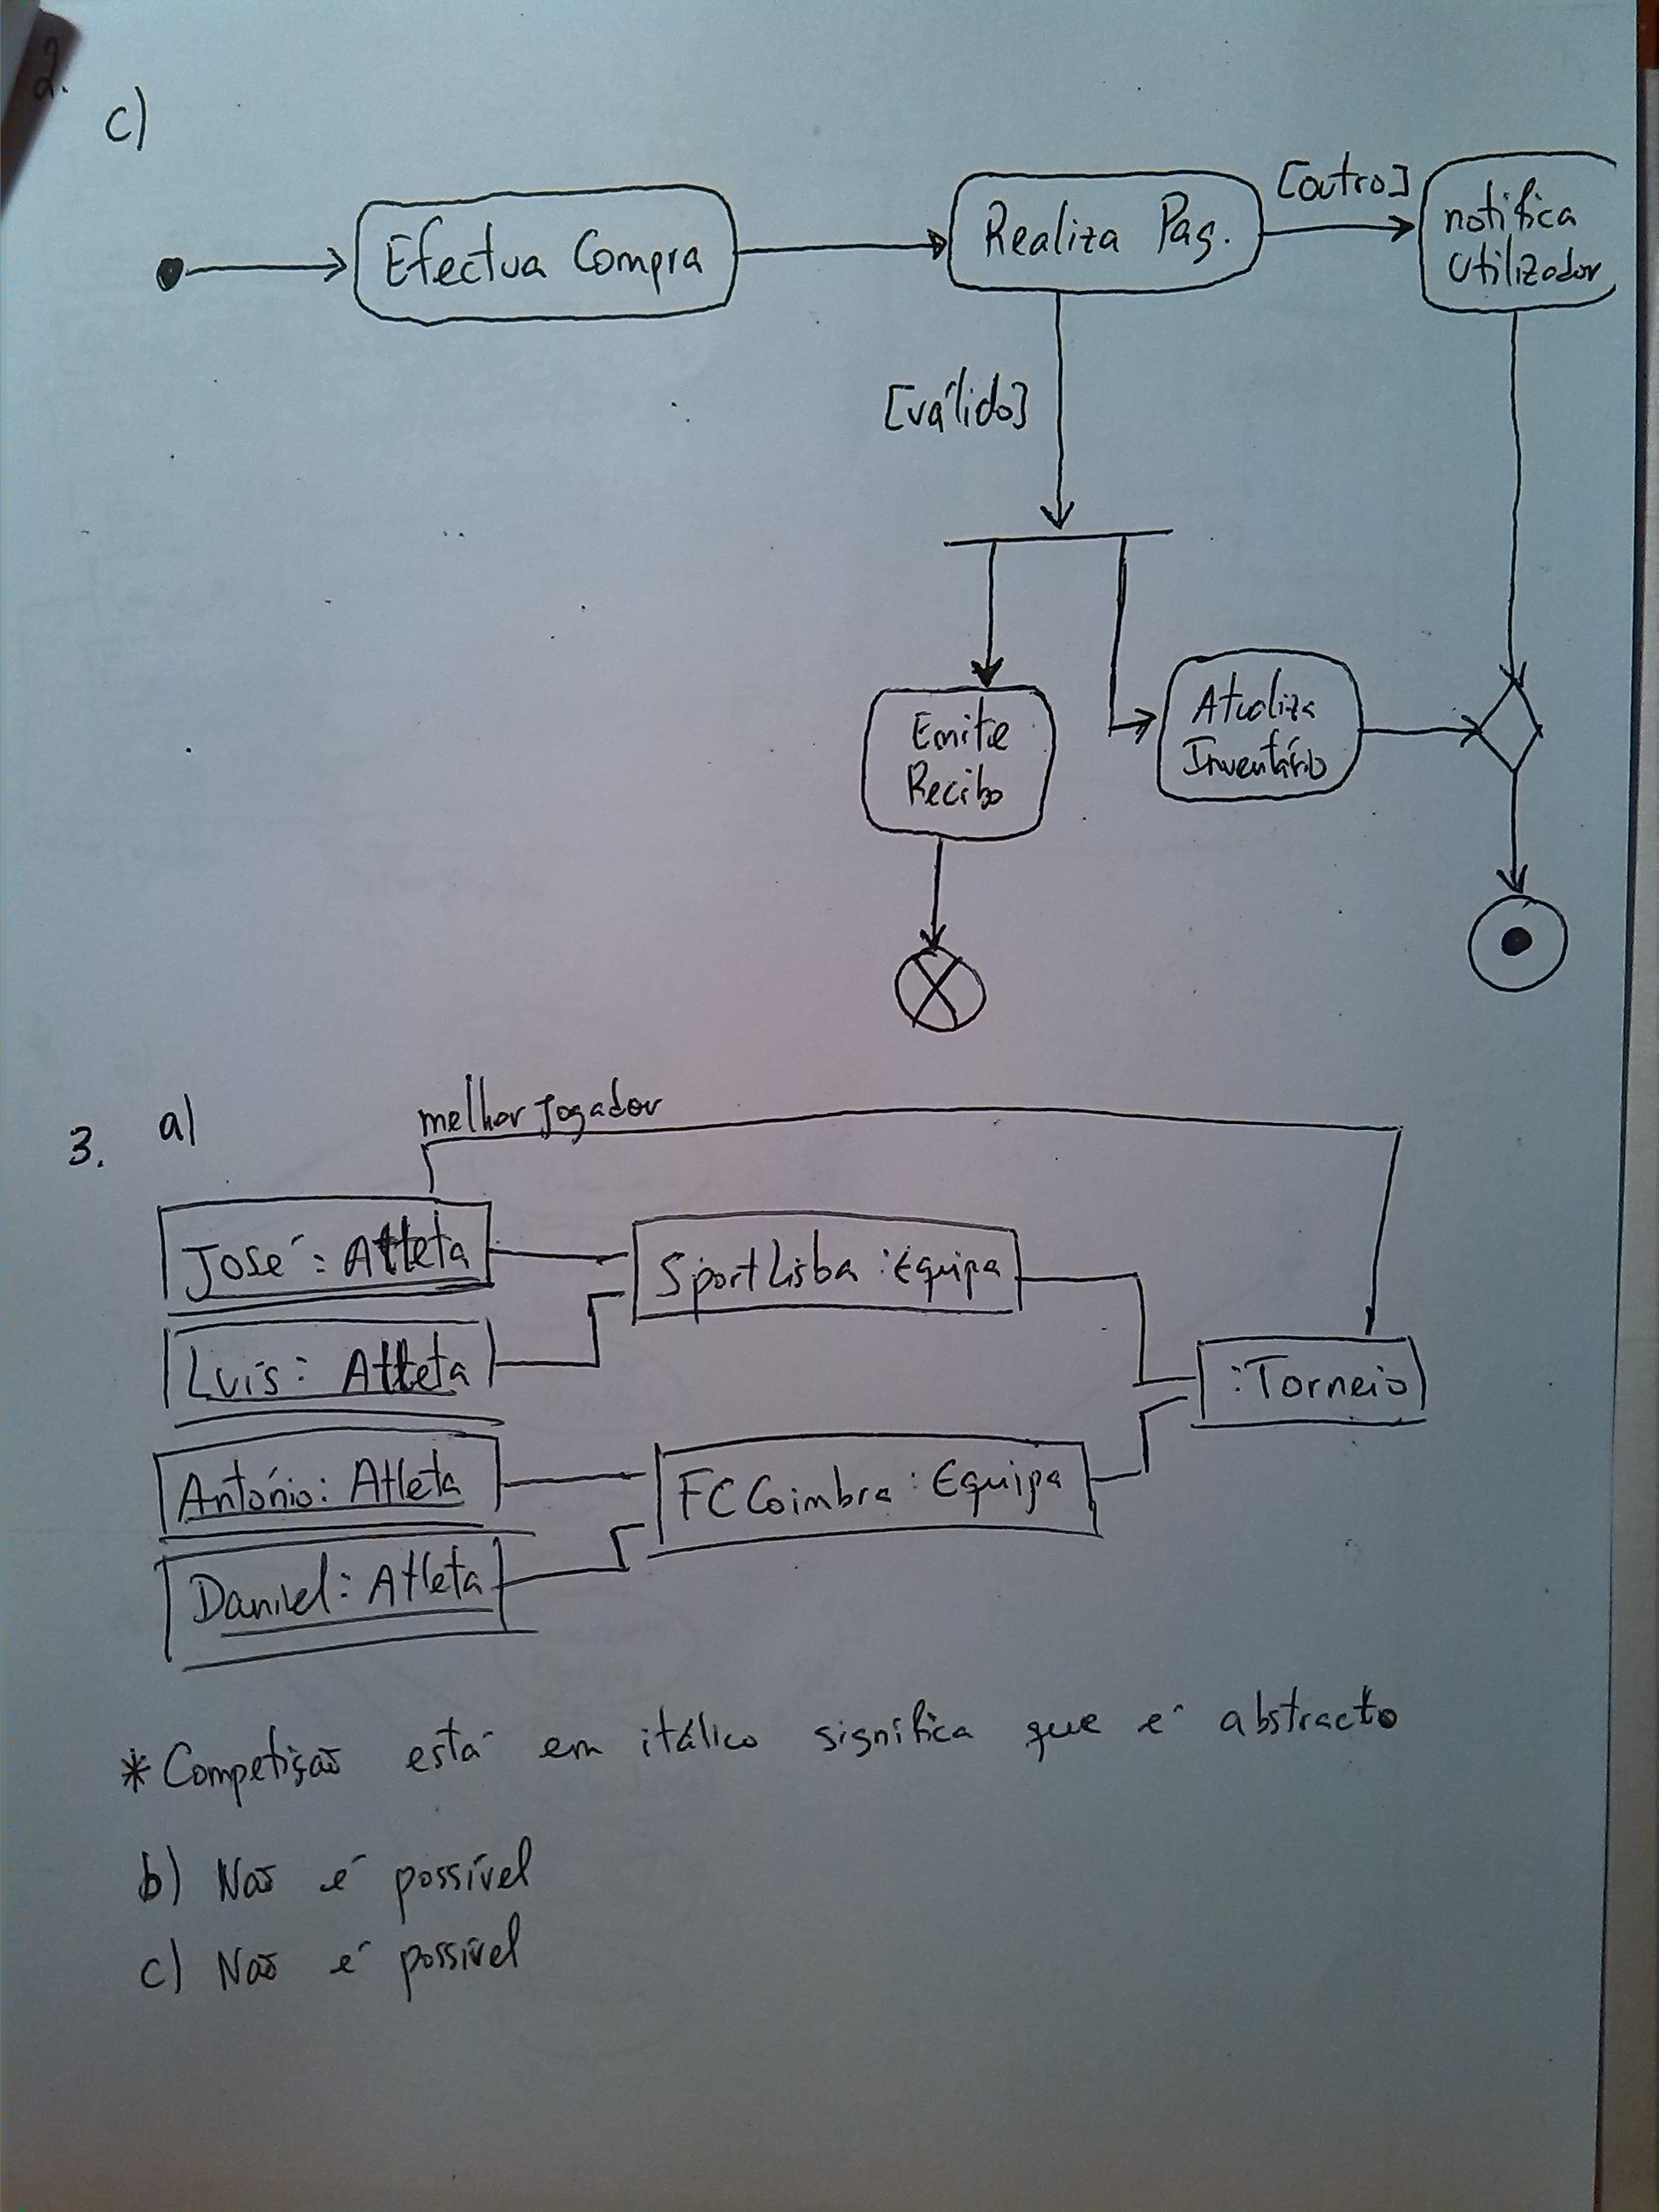 2.
c)
Efectua Compra
Realiza Pag.
[outro]
notifica
Utilizador
[válido]
Emite
Recibo
Atualiza
Inventário
3.
a)
melhor Jogador
José : Atleta
SportLisba : Equipa
Luís : Atleta
: Torneio
António : Atleta
FC Coimbra : Equipa
Daniel : Atleta
* Competição está em itálico significa que é abstracto
b) Não é possível
c) Não é possível